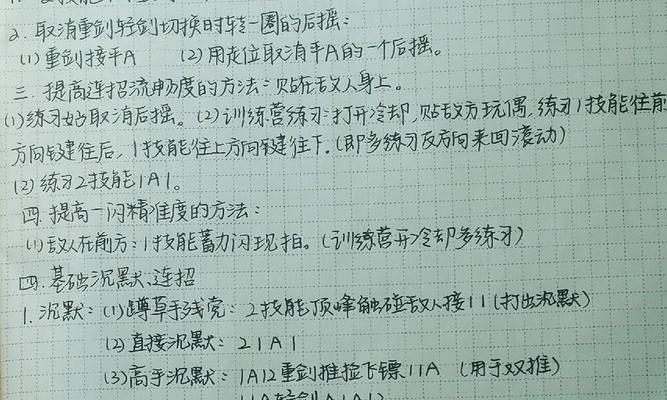 2. 取消重剑轻剑切换时转一圈的后摇:
(1) 重剑接平A (2) 用走位取消平A的一个后摇。
三. 提高连招流畅度的方法: 贴在敌人身上。
(1) 练习好取消后摇。(2) 训练营练习: 打开冷却, 贴敌方玩偶, 练习1技能往前
方向键往后, 1技能往上方向键往下. (即多练习反方向来回滚动)
(2) 练习2技能1A1。
四. 提高一闪精准度的方法:
(1) 敌人在前方: 1技能蓄力闪现拍。(训练营开冷却多练习)
四. 基础沉默、连招
1. 沉默: (1) 蹲草手残党: 2技能顶峰触碰敌人接11 (打出沉默)
(2) 直接沉默: 21A1
(3) 高手沉默: 1A12重剑推捡飞镖11A (用于双推)